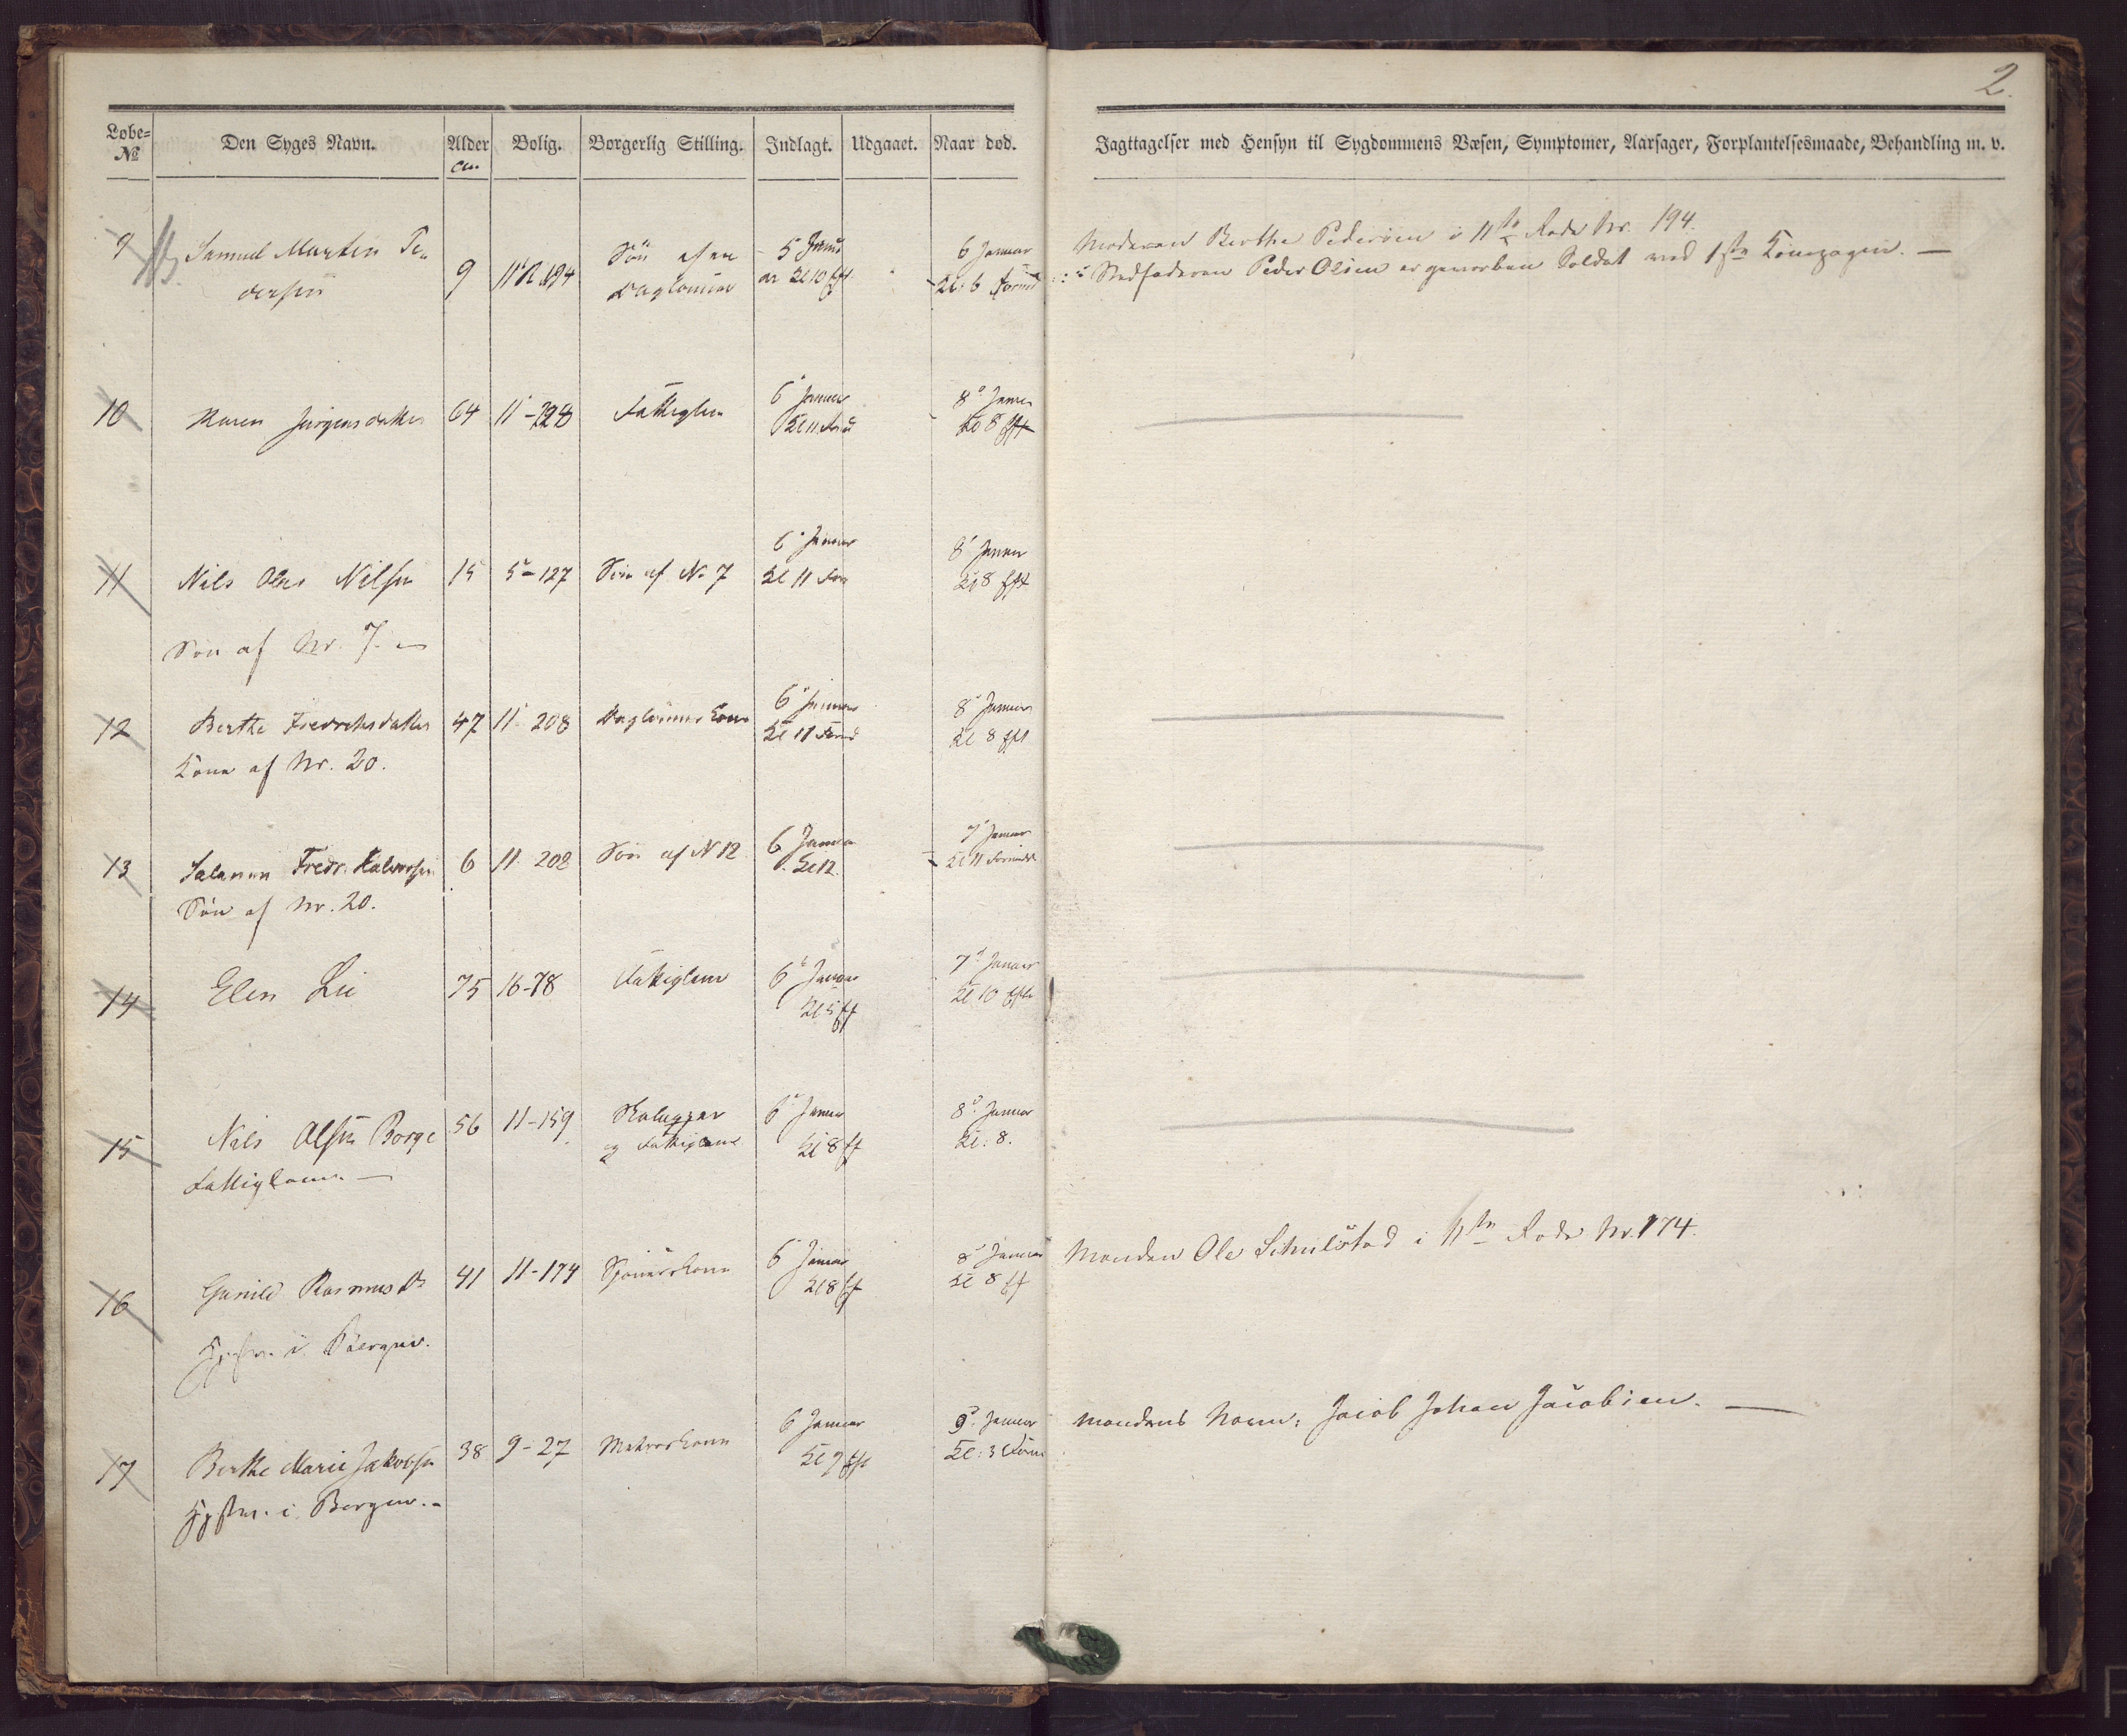 2.
Løbe= № Den Syges Navn. Alder Bolig. Borgerlig Stilling. Indlagt. Udgaaet. Naar død.
Jagttagelser med Hensyn til Sygdommens Væsen, Symptomer, Aarsager, Forplantelsesmaade, Behandling m. v.
9 Samuel Martin Pe„ 9 11 R 194 Søn af en 5 Janu 6 Januar
dersen Dagleinar Kl 10 Kl: 6 Form
Moderen Berthe Pedersen i 11te Rode Nr. 194.
Stedfaderen Peder Olsen er geworben Soldat ved 1ste Kompagni. —
10 Maren Jørgensdatter 64 11- Fattiglem 6 Januar 8 Januar
Kl 11 For Kl 8 Eft
11 Nils Olai Nilsen 15 5-127 Søn af No 7 6 Januar 8 Januar
Kl 11 For Kl 8 Eft
Søn af Nr. 7. —
12 Berthe Fredriksdatter 47 11-208 Dagleinerkone 6 Januar 8 Januar
Kl 11 Form Kl 8 Eft
Kone af Nr. 20.
13 Salamon Fredr. Halvorsen 6 11-208 Søn af N 12 6 Januar 7 Januar
Kl 12. Kl 11 Formidd
Søn af Nr. 20.
14 Elen Lie 75 16-78 Fattiglem 6 Januar 7 Januar
Kl 5 Ef Kl 10 Eft
15 Nils Olsen Borge 56 11-159 6 Januar 8 Januar
og Fattiglem Kl 8 Ef Kl: 8.
Fattiglem. —
16 Gunild Rasmusdr 41 11-174 Sjømandskone 6 Januar 8 Januar
Kl 8 Ef Kl 8 Ef
Hjstn. i Bergen.
Manden Ole i 11te Rode Nr. 174.
17 Berthe Marie Jakobsen 38 9-27 Matroskone 6 Januar 9 Januar
Kl 9 Eft Kl: 3 Form
Hjstn. i Bergen. -
Mandens Navn: Jacob Johan Jacobsen. —